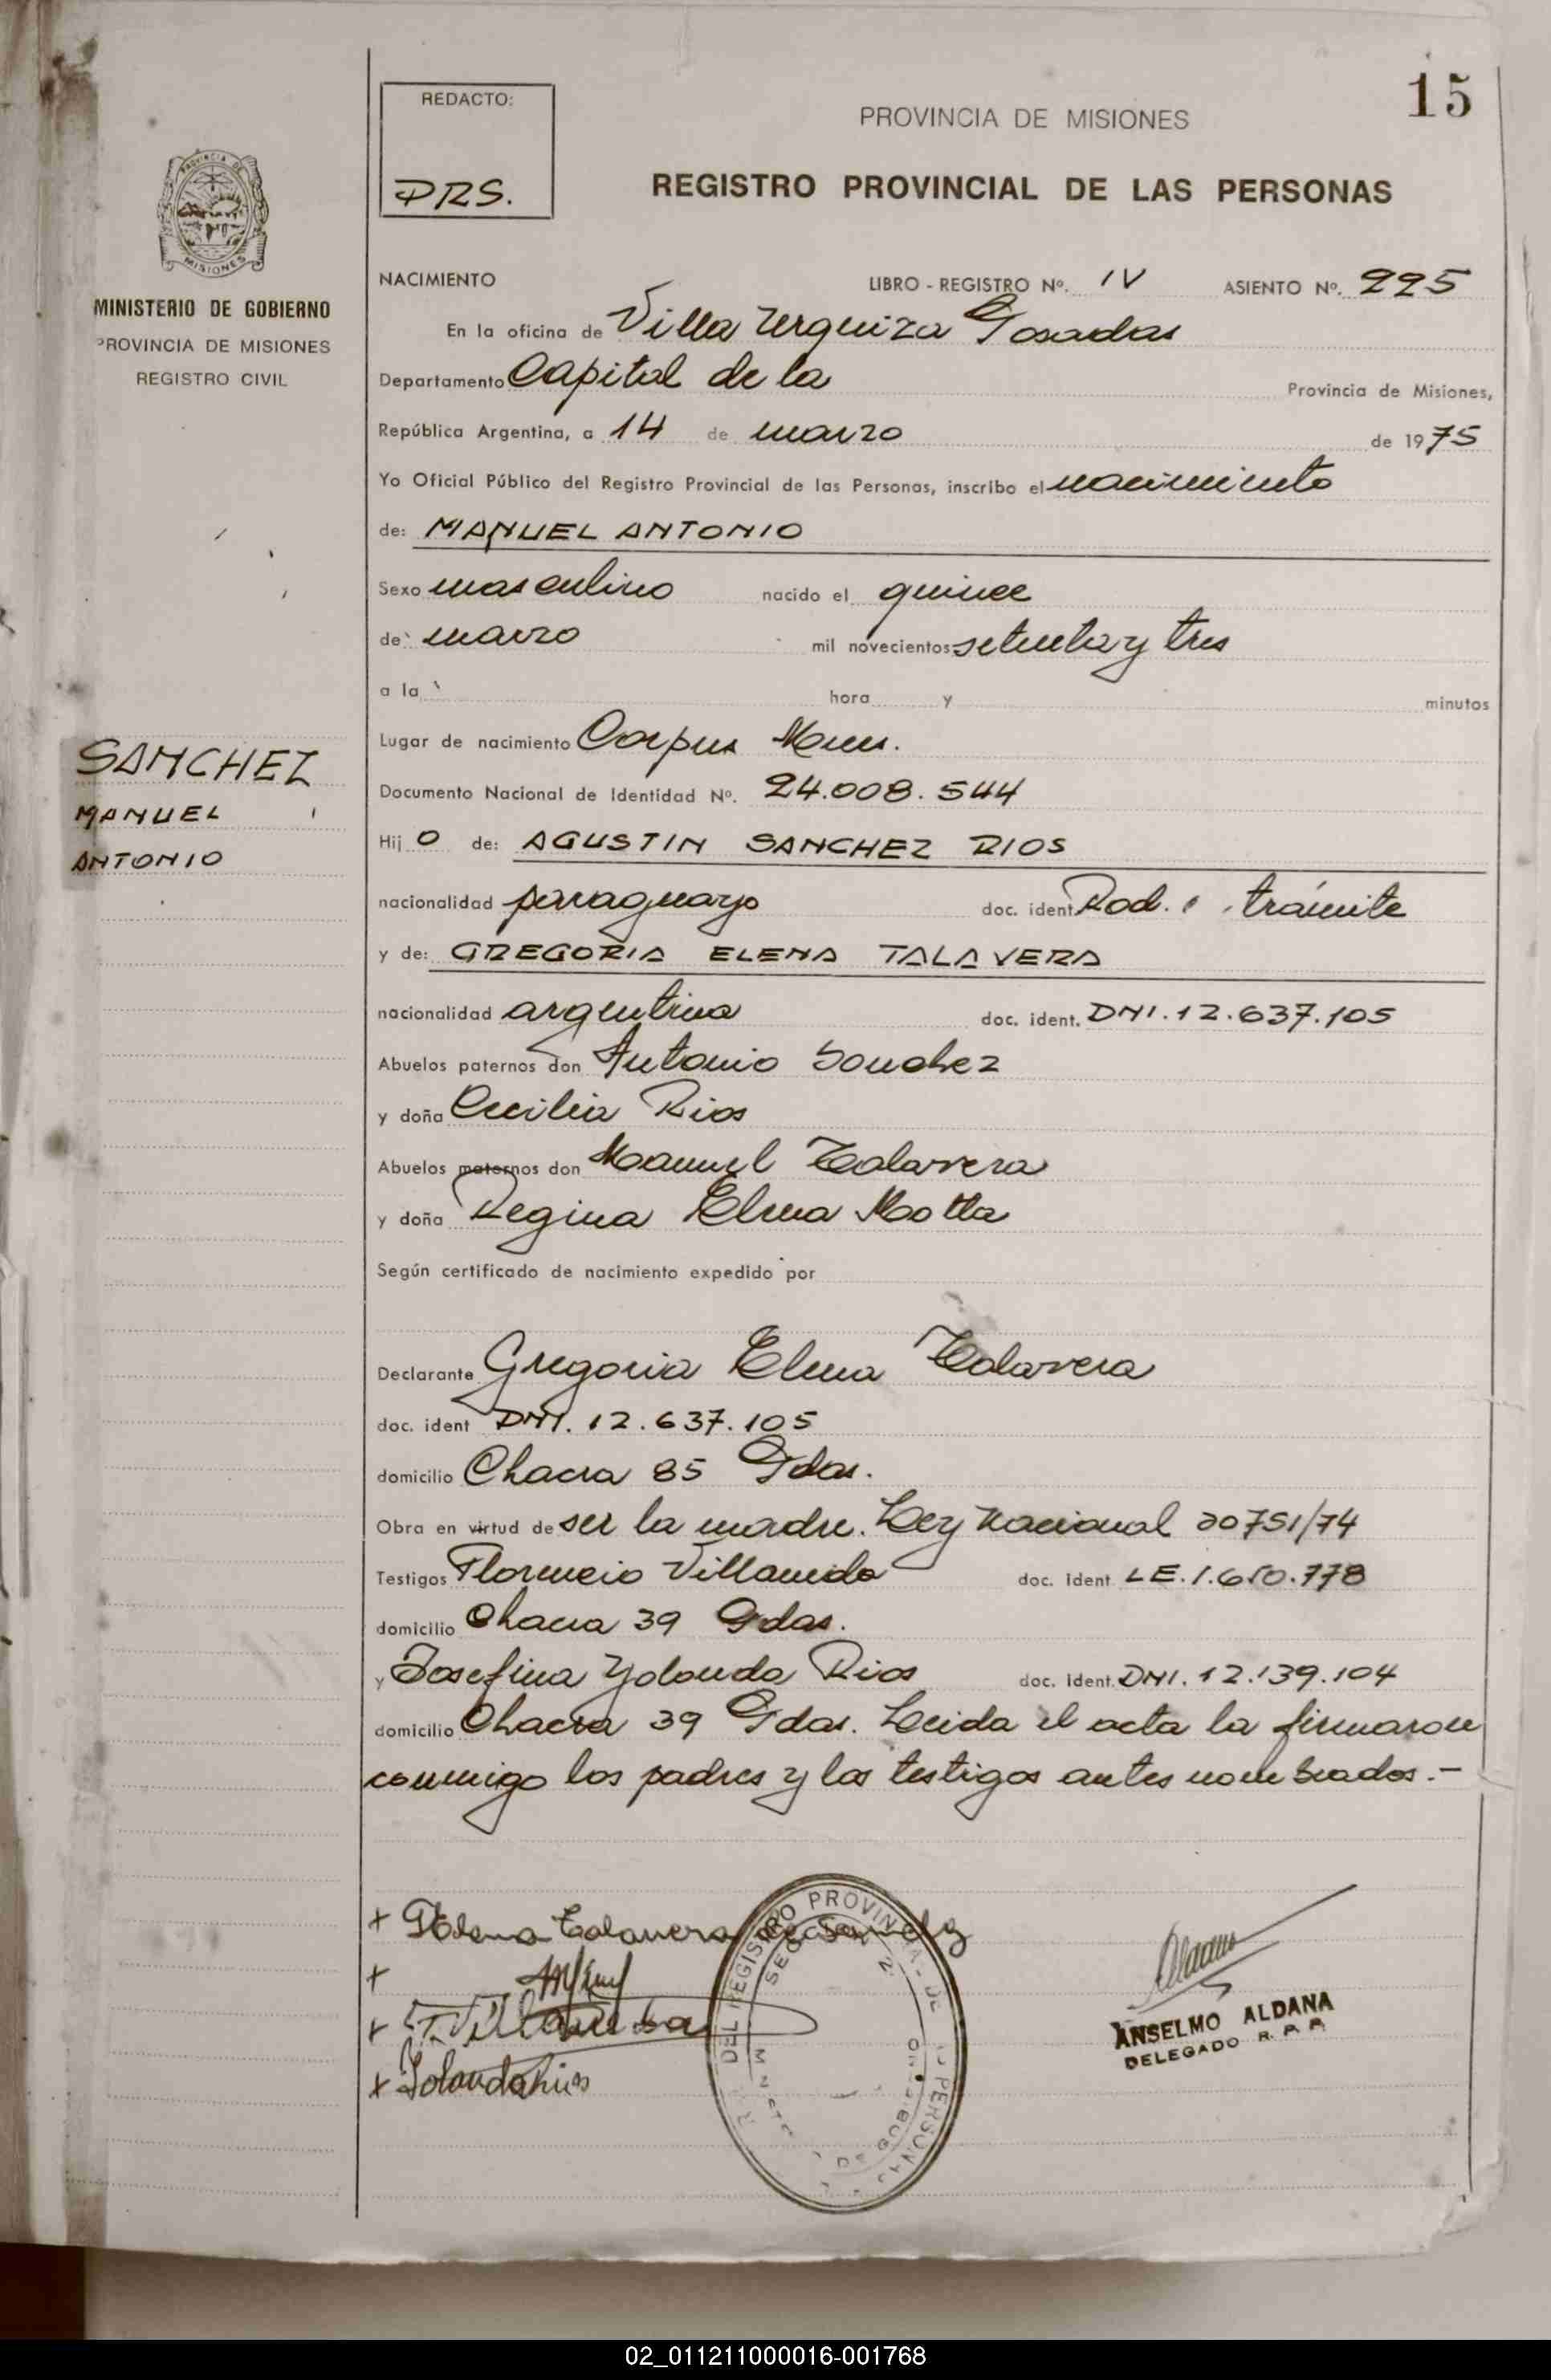 15
REDACTO:
DRS.
PROVINCIA DE MISIONES
REGISTRO PROVINCIAL DE LAS PERSONAS
PROVINCIA DE
MISIONES
MINISTERIO DE GOBIERNO
PROVINCIA DE MISIONES
REGISTRO CIVIL
NACIMIENTO LIBRO - REGISTRO Nº. IV ASIENTO Nº. 225
En la oficina de Villa Urquiza Posadas
Departamento Capital de la Provincia de Misiones,
República Argentina, a 14 de marzo de 1975
Yo Oficial Público del Registro Provincial de las Personas, inscribo el nacimiento
de: MANUEL ANTONIO
Sexo masculino nacido el quince
de marzo mil novecientos setenta y tres
a la hora y minutos
Lugar de nacimiento Corpus Mnes.
SANCHEZ
MANUEL
ANTONIO
Documento Nacional de Identidad Nº. 24.008.544
Hij o de: AGUSTIN SANCHEZ RIOS
nacionalidad paraguayo doc. ident. Rad. trámite
y de: GREGORIA ELENA TALAVERA
nacionalidad argentina doc. ident. DNI. 12.637.105
Abuelos paternos don Antonio Sanchez
y doña Cecilia Rios
Abuelos maternos don Manuel Talavera
y doña Regina Elena Motta
Según certificado de nacimiento expedido por
Declarante Gregoria Elena Talavera
doc. ident DNI. 12.637.105
domicilio Chacra 85 Pdas.
Obra en virtud de ser la madre. Ley Nacional 20751/74
Testigos Florencio Villaneda doc. ident LE. 1.650.778
domicilio Chacra 39 Pdas.
y Josefina Yolanda Rios doc. ident. DNI. 12.139.104
domicilio Chacra 39 Pdas. Leida el acta la firmaron
conmigo los padres y los testigos antes nombrados.-
+ Elena Talavera de Sanchez
+
+ F. Villaneda
+ Yolanda Rios
DEL REGISTRO PROVINCIAL DE PERSONAS
ANSELMO ALDANA
DELEGADO R. P. P.
02_011211000016-001768